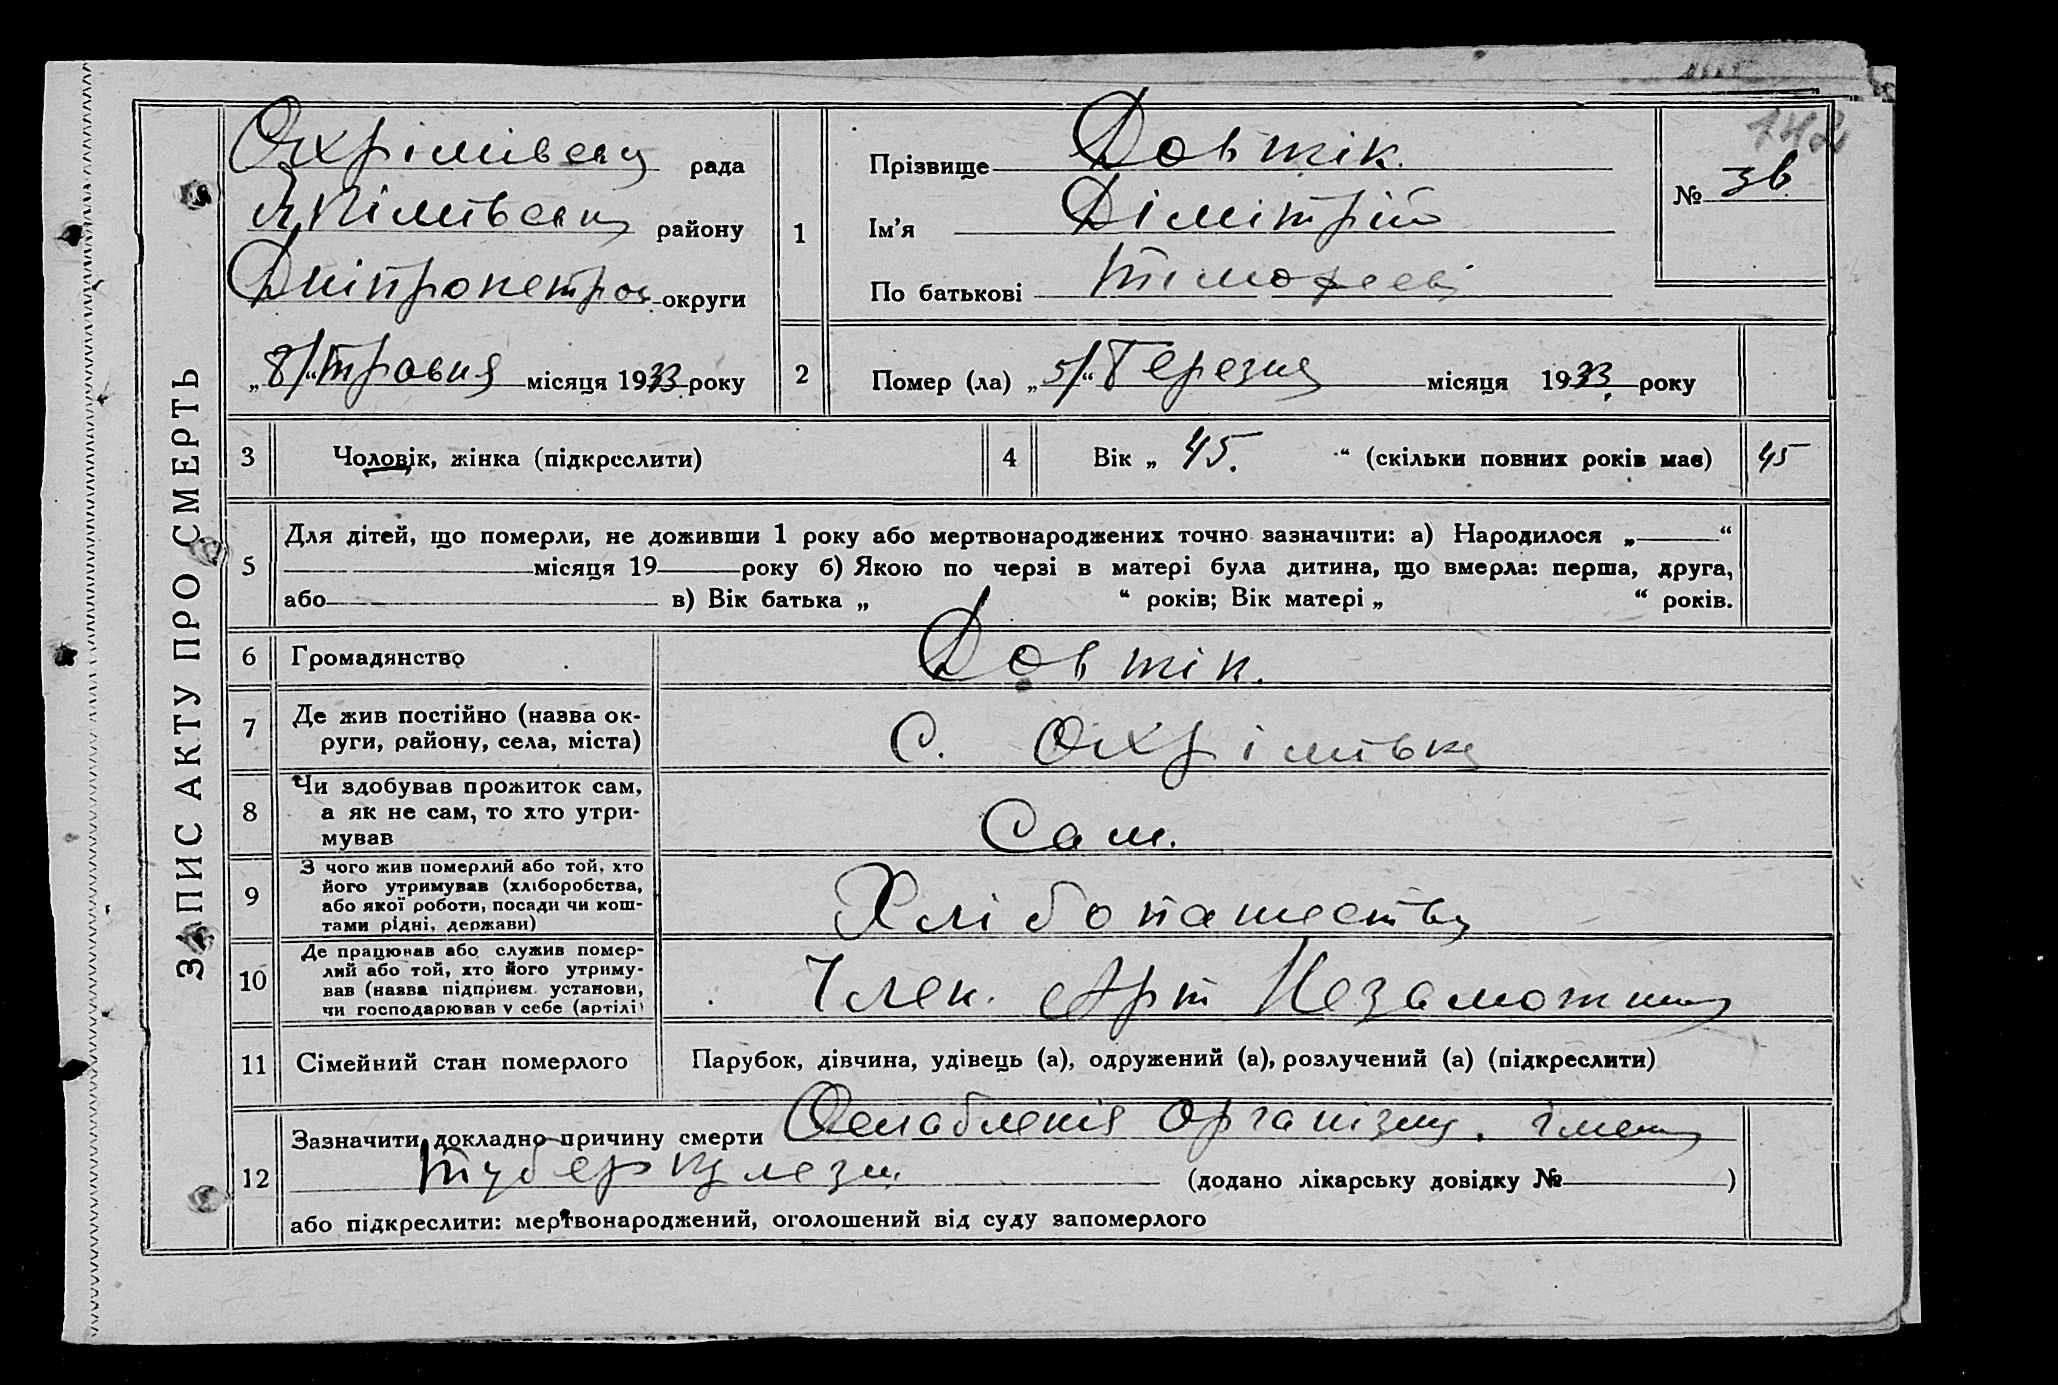 ЗАПИС АКТУ ПРО СМЕРТЬ
Охрімівськ рада
Якімівськ району
Дніпропетров округи
„8/“ травня місяця 1933 року
1
Прізвище Довтік
Ім’я Дімітрій
По батькові Тімофеев
142
№ 36
2
Помер (ла) „5/“ березня місяця 1933 року
3
Чоловік, жінка (підкреслити)
4
Вік „ 45. “ (скільки повних років має)
45
5
Для дітей, що померли, не доживши 1 року або мертвонароджених точно зазначити: а) Народилося „ “
місяця 19 року б) Якою по черзі в матері була дитина, що вмерла: перша, друга,
або в) Вік батька „ “ років; Вік матері „ “ років.
6
Громадянство
Довтік.
7
Де жив постійно (назва ок-
руги, району, села, міста)
С. Охрімівка
8
Чи здобував прожиток сам,
а як не сам, то хто утри-
мував
Сам.
9
З чого жив померлий або той, хто
його утримував (хліборобства,
або якої роботи, посади чи кош-
тами рідні, держави)
Хлібопашество
10
Де працював або служив помер-
лий або той, хто його утриму-
вав (назва підприєм. установи,
чи господарював у себе (артілі)
Член. Арт Незаможник
11
Сімейний стан померлого
Парубок, дівчина, удівець (а), одружений (а), розлучений (а) (підкреслити)
12
Зазначити докладно причину смерти Ослабленія організму.
туберкулези
(додано лікарську довідку № )
або підкреслити: мертвонароджений, оголошений від суду запомерлого